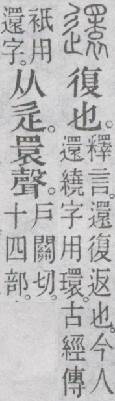 還
復也。釋言。還復返也。今人
還繞字用環。古經傳
衹用
還字。从辵。瞏聲。戶關切。
十四部。